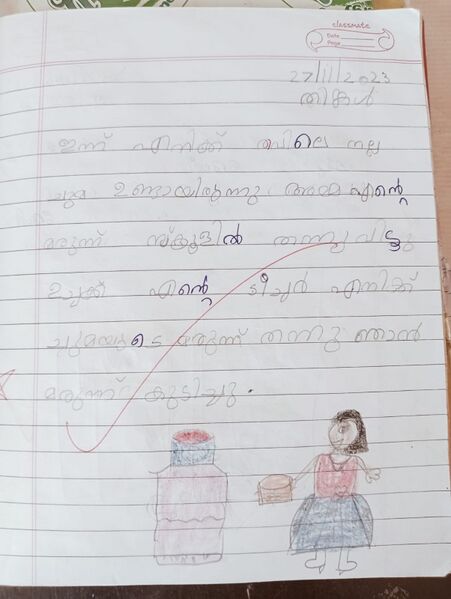 classmate
Date
Page
27/11/2023
തിങ്കൾ
ഇന്ന് എനിക്ക് രാവിലെ നല്ല
ചുമ ഉണ്ടായിരുന്നു. അമ്മ എന്റെ
മരുന്ന് സ്കൂളിൽ തന്നു വിട്ടു
ഉച്ചക്ക് എന്റെ ടീച്ചർ എനിക്ക്
ചുമയുടെ മരുന്ന് തന്നു ഞാൻ
മരുന്ന് കുടിച്ചു.